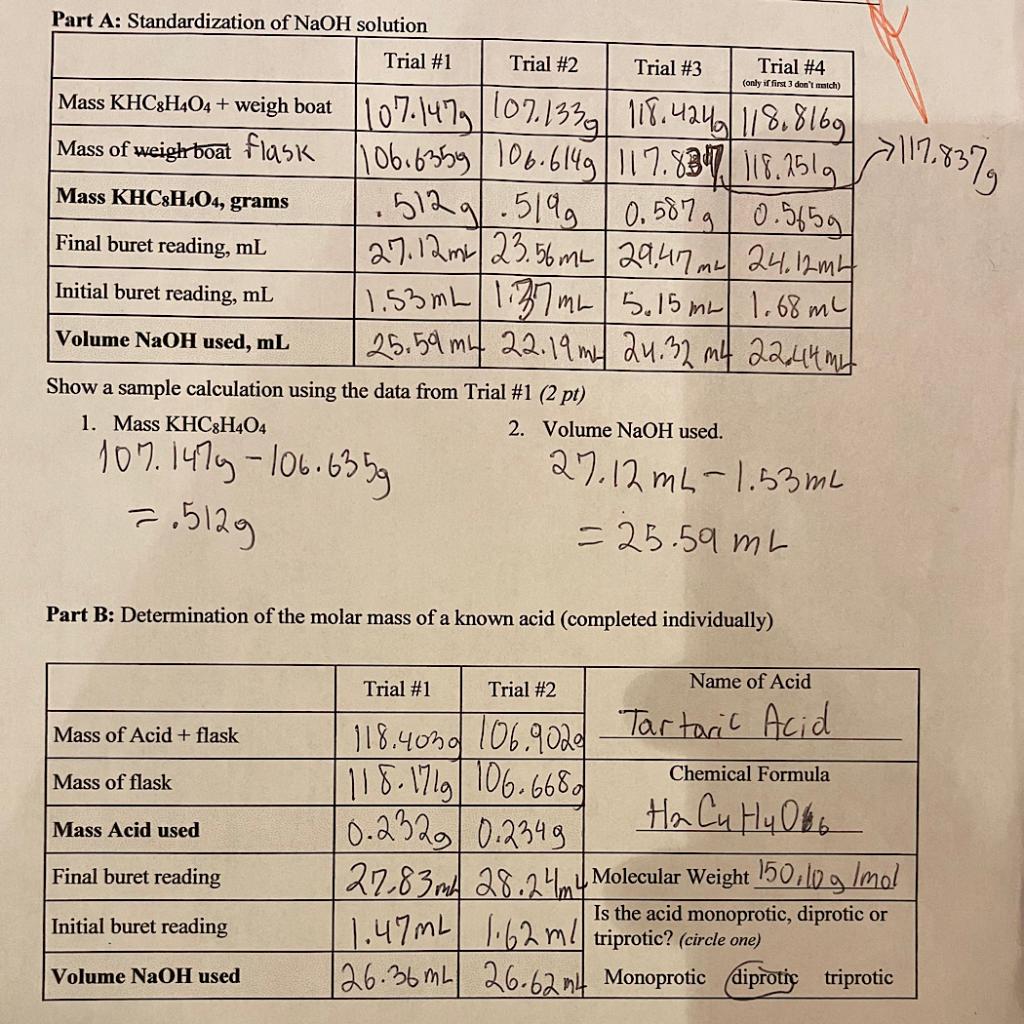 Part A: Standardization of NaOH solution
Trial #1 Trial #2 Trial #3 Trial #4
(only if first 3 don't match)
Mass KHC8H4O4 + weigh boat 107.147g 107.133g 118.424g 118.816g
Mass of weigh boat flask 106.635g 106.614g 117.837 118.251g → 117.837g
Mass KHC8H4O4, grams .512g .519g 0.587g 0.565g
Final buret reading, mL 27.12mL 23.56mL 29.47mL 24.12mL
Initial buret reading, mL 1.53mL 1.37mL 5.15mL 1.68mL
Volume NaOH used, mL 25.59mL 22.19mL 24.32mL 22.44mL
Show a sample calculation using the data from Trial #1 (2 pt)
1. Mass KHC8H4O4 2. Volume NaOH used.
107.147g - 106.635g 27.12mL - 1.53mL
= .512g = 25.59 mL
Part B: Determination of the molar mass of a known acid (completed individually)
Trial #1 Trial #2 Name of Acid
Mass of Acid + flask 118.403g 106.902g Tartaric Acid
Mass of flask 118.171g 106.668g Chemical Formula
Mass Acid used 0.232g 0.234g H2C4H4O6
Final buret reading 27.83mL 28.24mL Molecular Weight 150.10g/mol
Initial buret reading 1.47mL 1.62ml Is the acid monoprotic, diprotic or
triprotic? (circle one)
Volume NaOH used 26.36mL 26.62mL Monoprotic diprotic triprotic